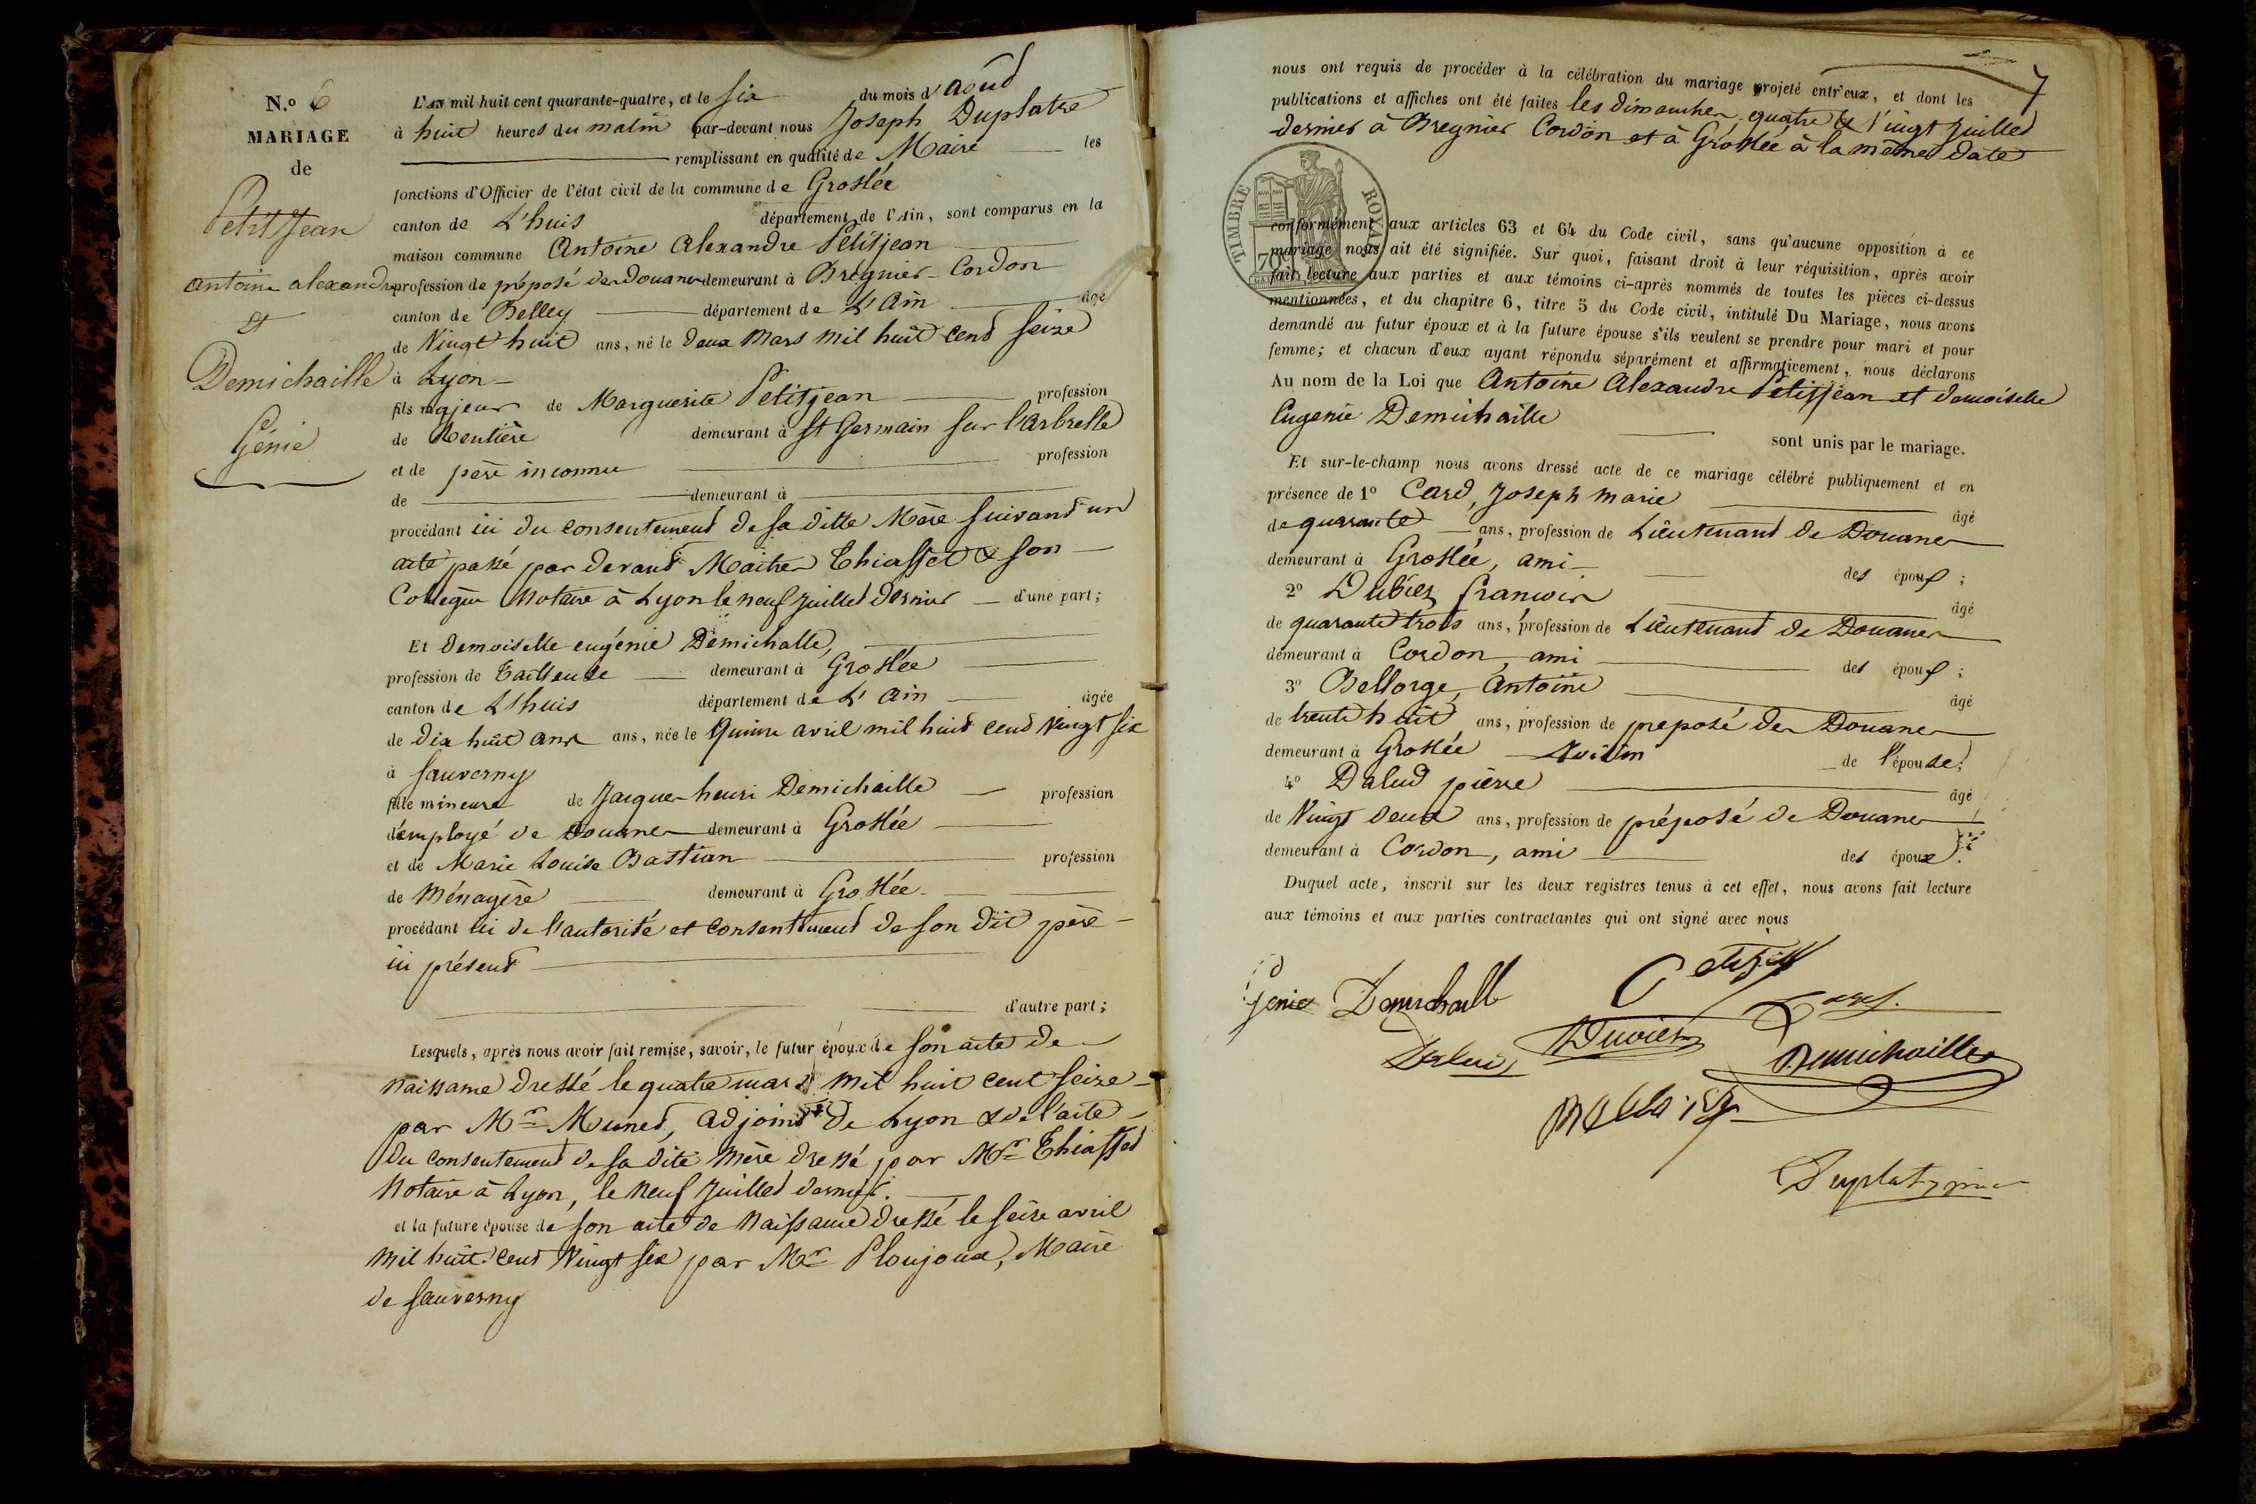 N.o 6
MARIAGE
de
Petit Jean
antoine alexandre
et
Demichaille
Génie
L'AN mil huit cent quarante-quatre, et le six du mois d'août
à huit heures du matin par-devant nous Joseph Duplatre
remplissant en qualité de Maire les
fonctions d'Officier de l'état civil de la commune de Groslée
canton de L'huis département de l'Ain, sont comparus en la
maison commune Antoine Alexandre Petitjean
profession de préposé des douanes demeurant à Brégnier-Cordon
canton de Belley département de L'Ain âgé
de Vingt huit ans, né le deux Mars mil huit cent seize
à Lyon
fils majeur de Marguerite Petitjean profession
de Rentière demeurant à St Germain sur l'arbresle
et de père inconnu profession
de demeurant à
procédant ici du consentement de sa ditte Mère suivant un
acte passé par devant Maitre Thiaffet & son
Collegue Notaire à Lyon le neuf Juillet dernier d'une part;
Et demoiselle eugénie Demichalle,
profession de Tailleuse demeurant à Groslée
canton de Lhuis département de L'Ain âgée
de dix huit ans ans, née le Quinze avril mil huit cent Vingt six
à Sauverny
fille mineure de Jacques henri Demichaille profession
d'employé de Douanes demeurant à Groslée
et de Marie Louise Bastian profession
de Ménagère demeurant à Groslée
procédant ici de l'autorité et consentement de son dit père
ici présent
d'autre part;
Lesquels, après nous avoir fait remise, savoir, le futur époux de son acte de
Naissance dressé le quatre mars mil huit cent seize
par Mr Meunet, adjoint de Lyon & de l'acte
du consentement de sa dite mère dressé par Mr Thiaffet
Notaire à Lyon, le neuf Juillet dernier.
et la future épouse de son acte de Naissance dressé le seize avril
mil huit cent Vingt six par Mr Ploujoux, Maire
de Sauverny
7
nous ont requis de procéder à la célébration du mariage projeté entr'eux, et dont les
publications et affiches ont été faites les dimanches quatre & vingt Juillet
dernier à Bregnier Cordon et à Groslée à la même date
TIMBRE ROYAL
70c
conformément aux articles 63 et 64 du Code civil, sans qu'aucune opposition à ce
mariage nous ait été signifiée. Sur quoi, faisant droit à leur réquisition, après avoir
fait lecture aux parties et aux témoins ci-après nommés de toutes les pièces ci-dessus
mentionnées, et du chapitre 6, titre 5 du Code civil, intitulé Du Mariage, nous avons
demandé au futur époux et à la future épouse s'ils veulent se prendre pour mari et pour
femme; et chacun d'eux ayant répondu séparément et affirmativement, nous déclarons
Au nom de la Loi que Antoine Alexandre Petitjean et demoiselle
Eugenie Demichaille
sont unis par le mariage.
Et sur-le-champ nous avons dressé acte de ce mariage célébré publiquement et en
présence de 1o Card, Joseph marie âgé
de quarante ans, profession de Lieutenant de Douanes
demeurant à Groslée, ami des époux;
2o Dubiez francois âgé
de quarante trois ans, profession de Lieutenant de Douanes
demeurant à Cordon, ami des époux;
3o Bellorge, Antoine âgé
de trente huit ans, profession de preposé des Douanes
demeurant à Groslée voisin de l'épouse;
4o Dalud pierre âgé
de Vingt deux ans, profession de préposé de Douanes
demeurant à Cordon, ami des époux.
Duquel acte, inscrit sur les deux registres tenus à cet effet, nous avons fait lecture
aux témoins et aux parties contractantes qui ont signé avec nous
génie Demichaille
Dalud
Demichaille